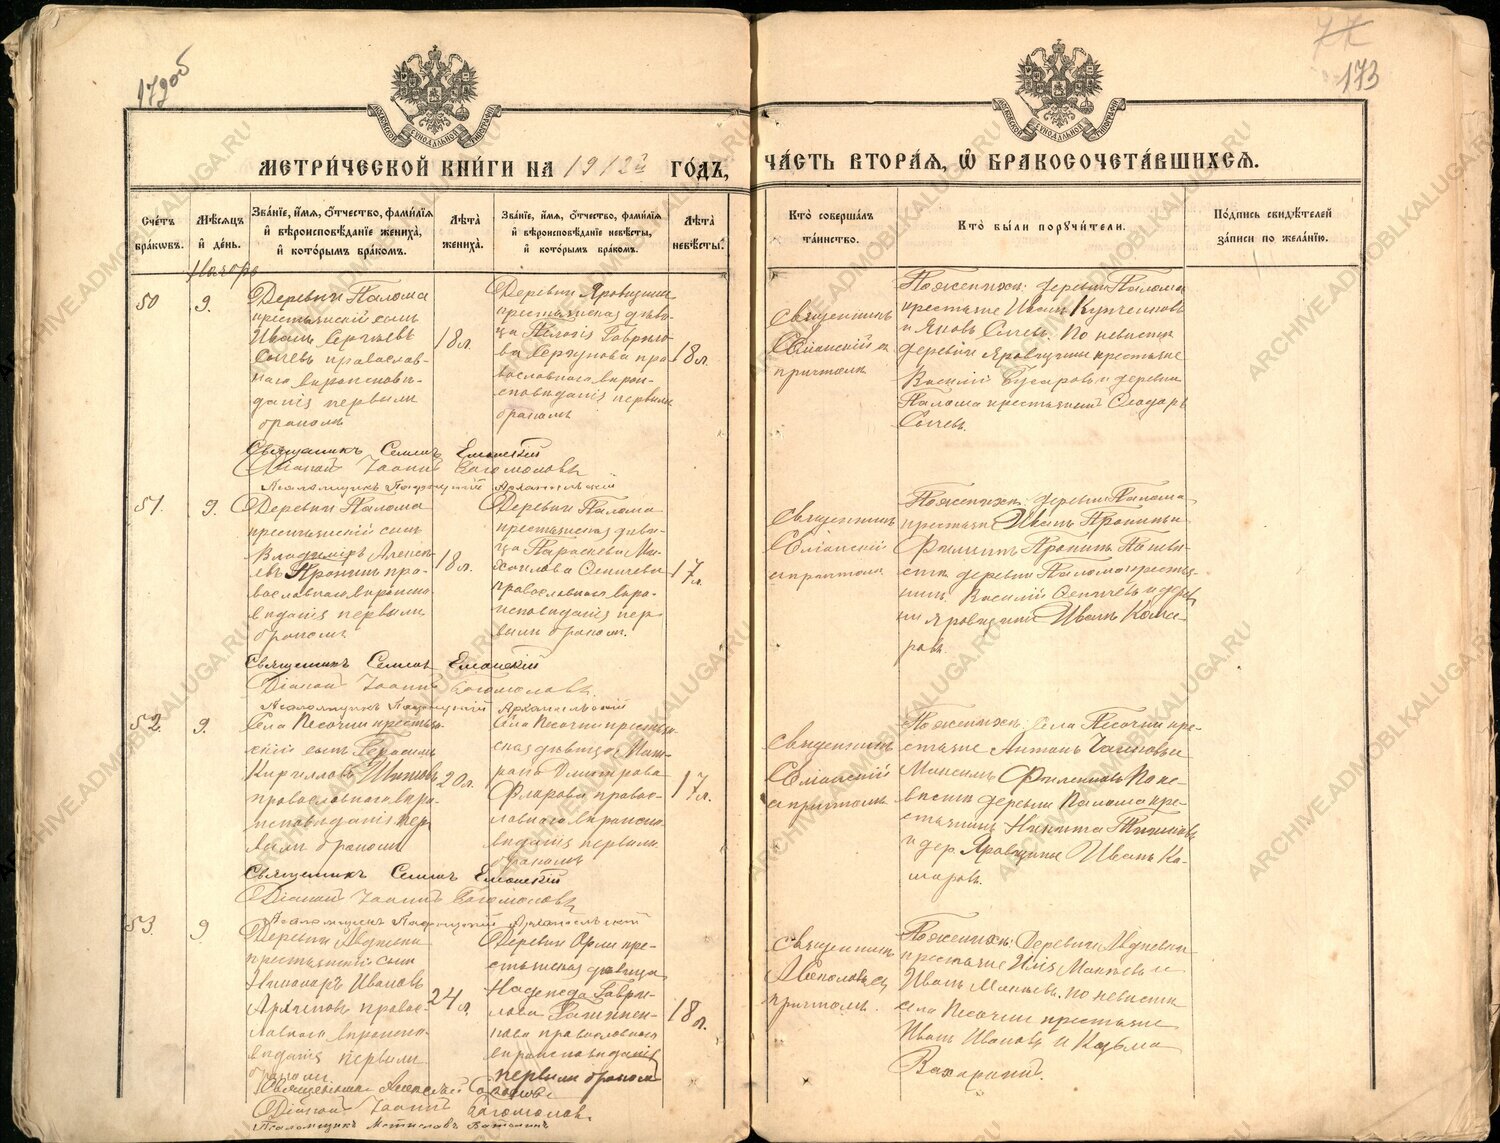 172об
77
173
МЕТРИ́ЧЕСКОЙ КНИ́ГИ НА 1912й ГО́ДЪ, ЧА́СТЬ ВТОРА́Я, Ѽ БРАКОСОЧЕТА́ВШИХСЯ.
Сче́тъ бра́ковъ.
Мѣ́сяцъ и҆ де́нь.
Зва́нїе, и҆́мя, ѻ҆́тчество, фами́лїя и҆ вѣроисповѣ́данїе жениха̀, и҆ кото́рымъ бра́комъ.
Лѣ́та̀ жениха̀.
Зва́нїе, и҆́мя, ѻ҆́тчество, фами́лїя и҆ вѣроисповѣ́данїе невѣ́сты, и҆ кото́рымъ бра́комъ.
Лѣ́та̀ невѣ́сты.
Кто̀ соверша́лъ та́инство.
Кто̀ бы́ли поручи́тели.
По́дпись свидѣ́телей за́писи по жела́нїю.
50
9.
Деревни Палома
крестьянскій сынъ
Иванъ Сергѣевъ
Сычевъ православ-
наго вѣроисповѣ-
данія первымъ
бракомъ
18 л.
Деревни Яровщины
крестьянская дѣви-
ца
Гаврило-
ва
пра-
вославнаго вѣрои-
сповѣданія первымъ
бракомъ
18 л.
Священникъ
Елманскій съ
причтомъ
По женихѣ: деревни Палома
крестьяне Иванъ
и Яковъ Сычевъ. По невѣстѣ
деревни Яровщины крестьяне
Василій
и деревни
Палома крестьянинъ Ѳеодоръ
Сычевъ.
Священникъ Семенъ Елманскій
Діаконъ Іоаннъ Богомоловъ
Псаломщикъ Пафнутій Архангельскій
51.
9.
Деревни Палома
крестьянскій сынъ
Владиміръ Алексѣ-
евъ Пронинъ пра-
вославнаго вѣроиспо-
вѣданія первымъ
бракомъ
18 л.
Деревни Палома
крестьянская дѣви-
ца Параскева Ми-
хаилова
православнаго вѣро-
исповѣданія пер-
вымъ бракомъ.
17 л.
Священникъ
Елманскій
съ причтомъ
По женихѣ: деревни Палома
крестьяне Иванъ Пронинъ и
Филиппъ Пронинъ По невѣ-
стѣ деревни Палома крестья-
нинъ Василій
и дерев-
ни Яровщины Иванъ Кома-
ровъ
Священникъ Семенъ Елманскій
Діаконъ Іоаннъ Богомоловъ.
Псаломщикъ Пафнутій Архангельскій
52.
9.
Села Песочни крестьян-
скій сынъ Герасимъ
Кирилловъ
православнаго вѣро-
исповѣданія пер-
вымъ бракомъ
20 л.
Села Песочни крестьян-
ская дѣвица Мат-
рона Дмитрова
Фларова правос-
лавнаго вѣроиспо-
вѣданія первымъ
бракомъ
17 л.
Священникъ
Елманскій
съ причтомъ
По женихѣ: Села Песочни кре-
стьяне Антонъ
и
Максимъ
По не-
вѣстѣ деревни Палома кре-
стьянинъ Никита
и дер. Яровщины Иванъ Ко-
маровъ.
Священникъ Семенъ Елманскій
Діаконъ Іоаннъ Богомоловъ
Псаломщикъ Пафнутій Архангельскій
53.
9
Деревни
крестьянскій сынъ
Никаноръ Ивановъ
Архиповъ правос-
лавнаго вѣроиспо-
вѣданія первымъ
бракомъ
24 л.
Деревни Орли кре-
стьянская дѣвица
Надежда Гаври-
лова
православнаго
вѣроисповѣданія
первымъ бракомъ
18 л.
Священникъ
съ
причтомъ.
По женихѣ: Деревни
крестьяне Илія
и
Иванъ
по невѣстѣ
села Песочни крестьяне
Иванъ Ивановъ и Козьма
Священникъ Алексѣй
Діаконъ Іоаннъ Богомоловъ.
Псаломщикъ Мстиславъ
ARCHIVE.ADMOBLKALUGA.RU